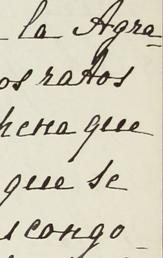 la Agra-
os ratos
hena que
que se
scongo